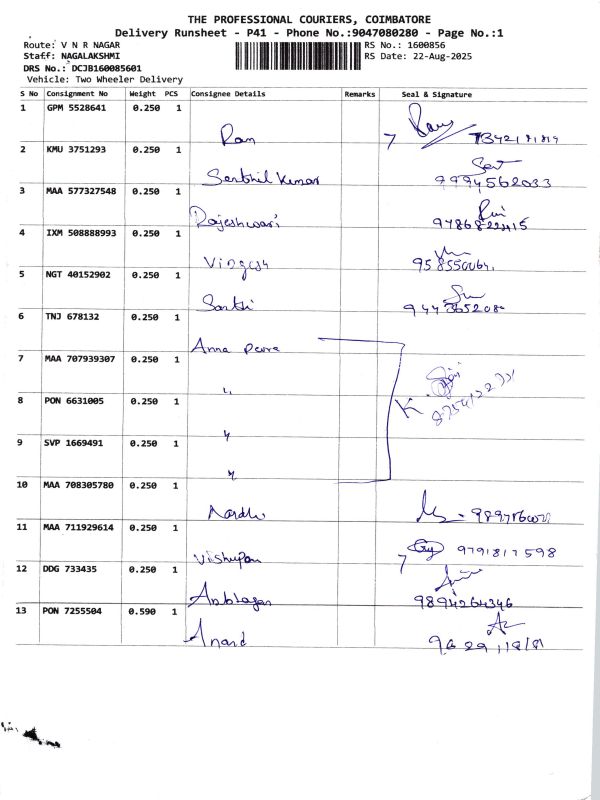 THE PROFESSIONAL COURIERS, COIMBATORE
Delivery Runsheet - P41 - Phone No.:9047080280 - Page No.:1
Route: V N R NAGAR RS No.: 1600856
Staff: NAGALAKSHMI RS Date: 22-Aug-2025
DRS No.: DCJB160085601
Vehicle: Two Wheeler Delivery
S No Consignment No Weight PCS Consignee Details Remarks Seal & Signature
1 GPM 5528641 0.250 1
Ram
2 KMU 3751293 0.250 1
Senthil Kumar 9994562033
3 MAA 577327548 0.250 1
Rajeshwari 9786822415
4 IXM 508888993 0.250 1
5 NGT 40152902 0.250 1
Sakthi
6 TNJ 678132 0.250 1
Anna
7 MAA 707939307 0.250 1
"
8 PON 6631005 0.250 1
"
9 SVP 1669491 0.250 1
"
10 MAA 708305780 0.250 1
11 MAA 711929614 0.250 1
9791817598
12 DDG 733435 0.250 1
9894264346
13 PON 7255504 0.590 1
Anand